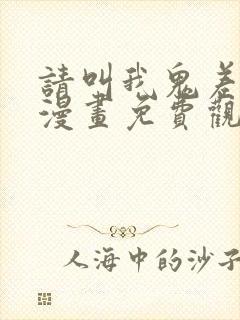 請叫我鬼差
漫畫免費觀
人海中的沙子